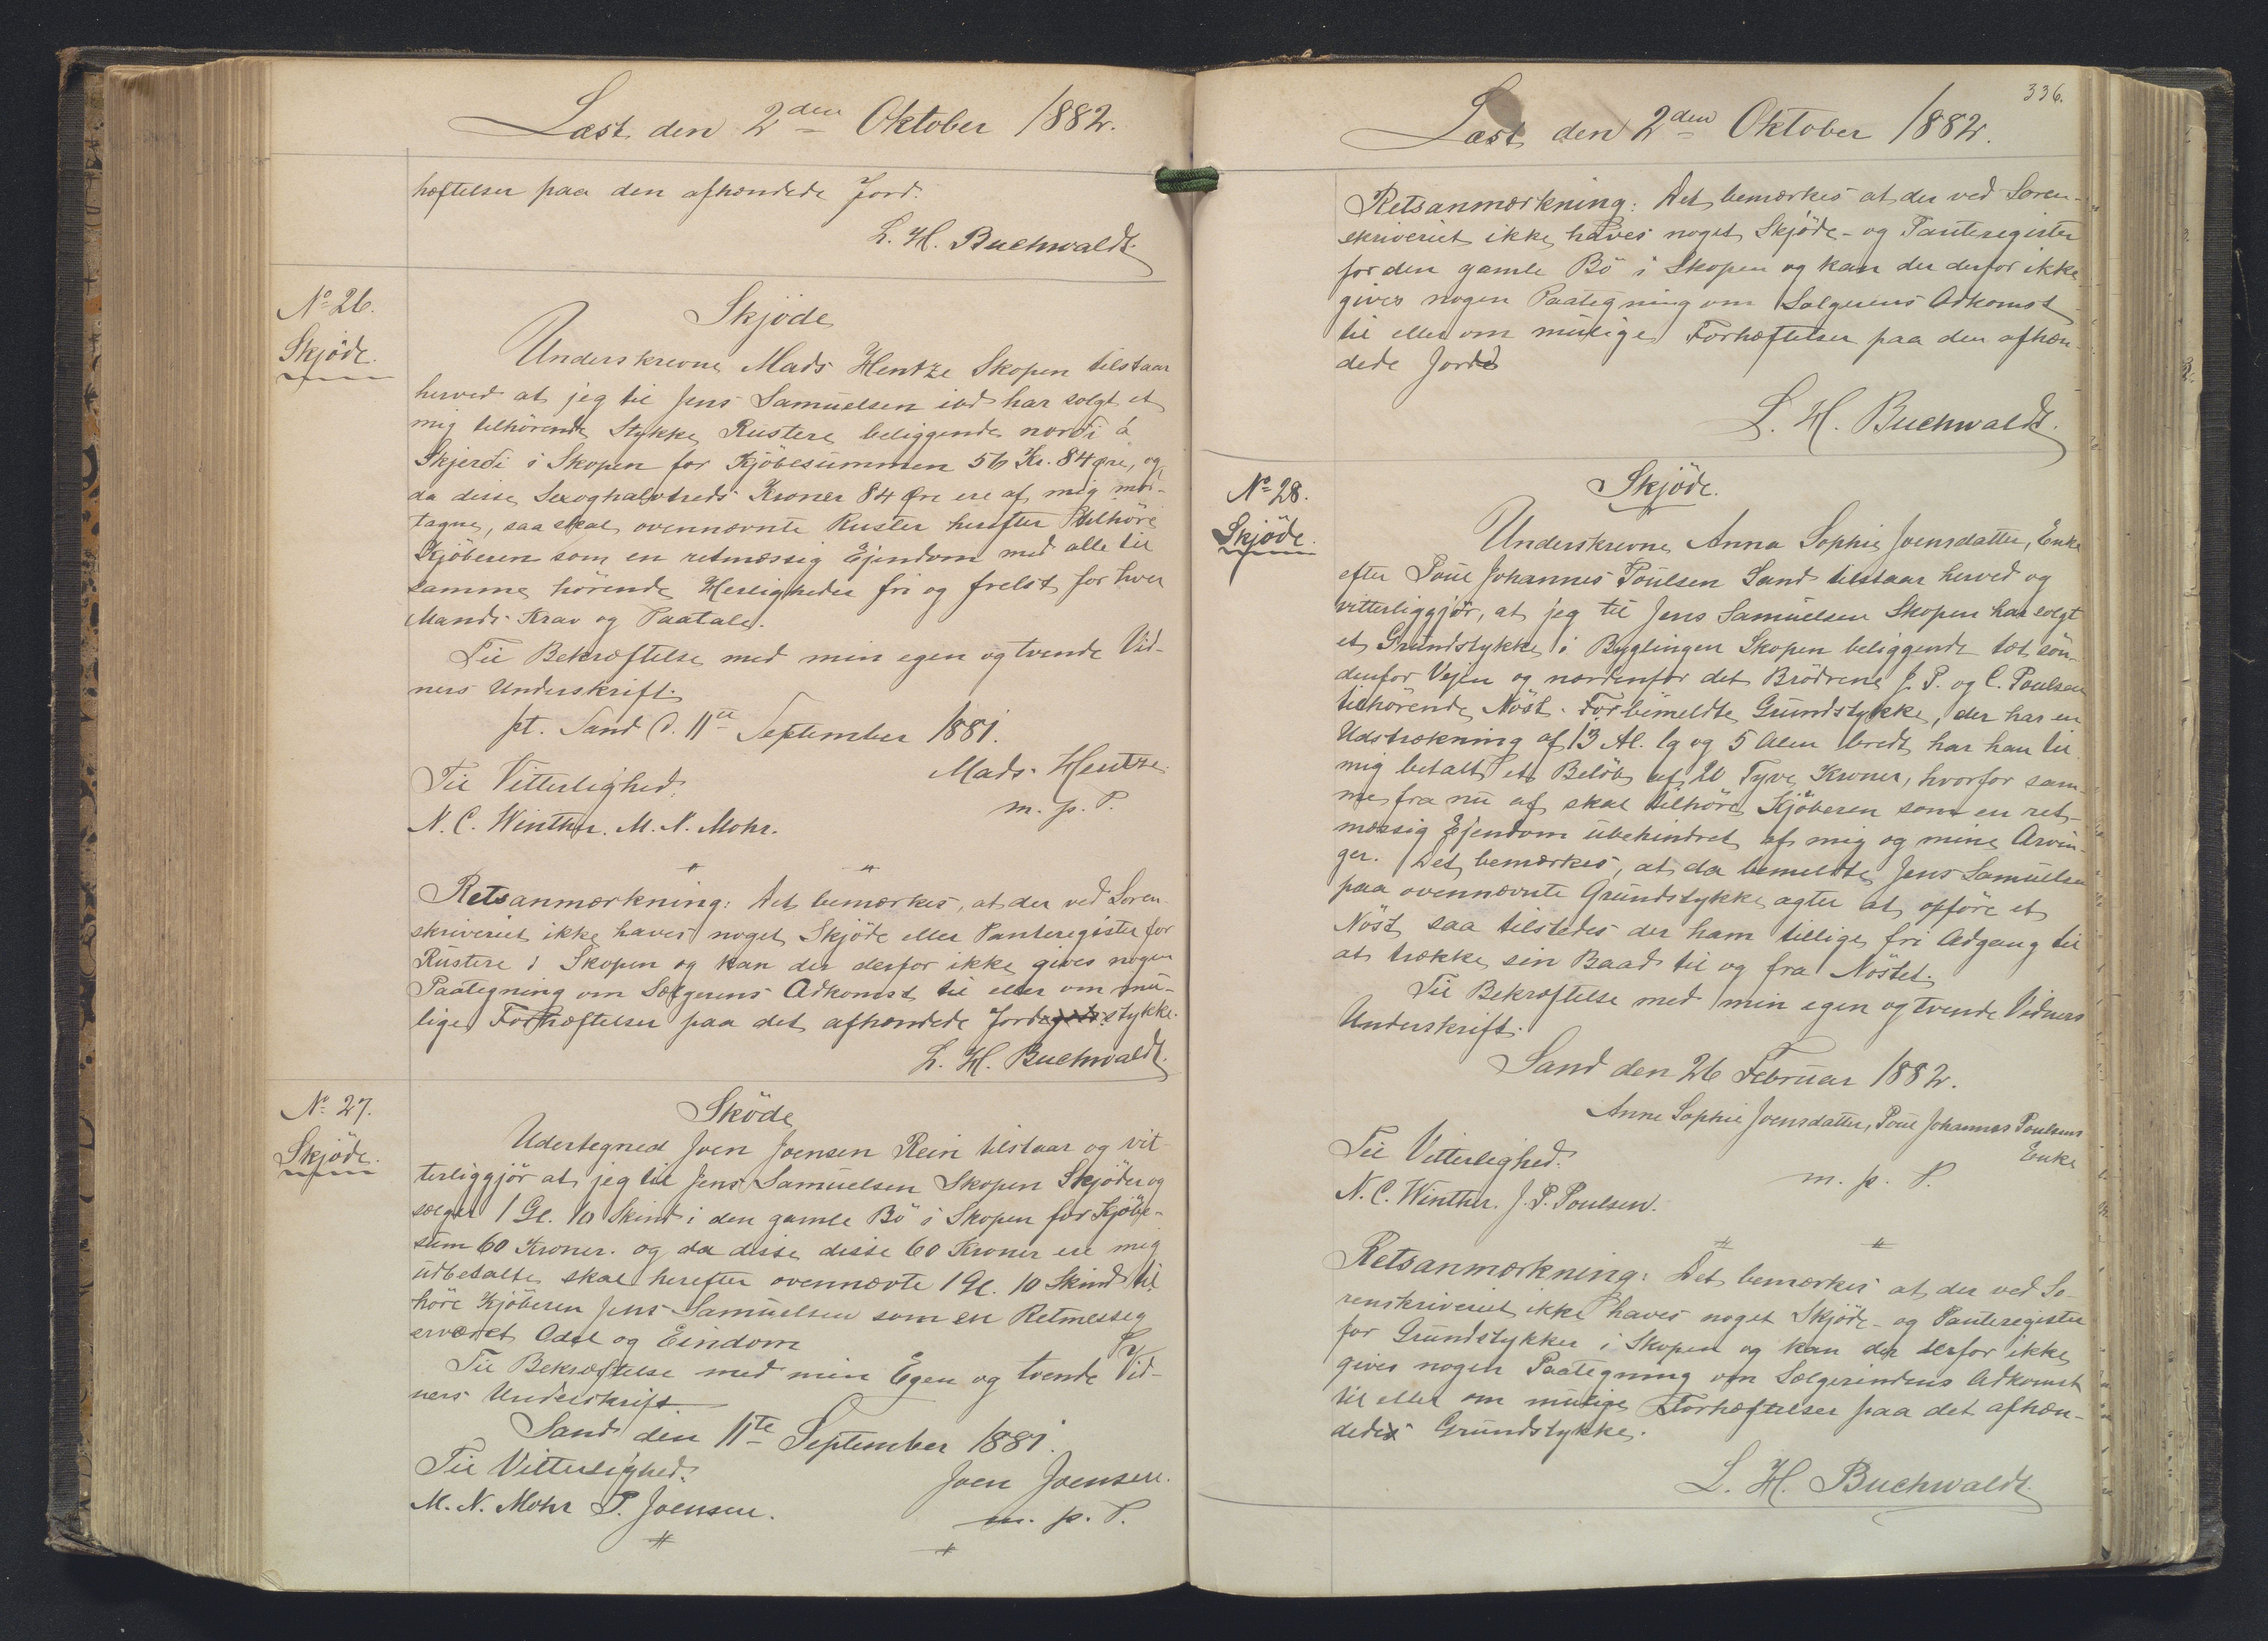 Læst den 2den Oktober 1882.
hæftelser paa den afhændede Jord.
L. H. Buchwaldt.
No 26.
Skjöde.
Skjöde
Underskrevne Mads Hentze Skopen tilstaar
herved at jeg til Jens Samuelsen ibd har solgt et
mig tilhörende Stykke Rustere beliggende nordi á
Skjerdi i Skopen for Kjöbesummen 56 Kr. 84 Øre, og
da disse Sexoghalvtreds Kroner 84 Øre ere af mig mod-
tagne, saa skal ovennævnte Ruster herefter tilhöre
Kjöberen som en retmæssig Ejendom med alle til
samme hörende Herligheder fri og frelst for hver
Mands Krav og Paatale.
Til Bekræftelse med min egen og tvende Vid-
ners Underskrift.
pt. Sand d. 11te September 1881.
Mads Hentze
m. p. P.
Til Vitterlighed:
N. C. Winther. M. N. Mohr.
Retsanmærkning: Det bemærkes, at der ved Soren-
skriveriet ikke haves noget Skjöde eller Panteregister for
Rustere i Skopen og kan der derfor ikke gives nogen
Paategning om Sælgerens Adkomst til eller om mu-
lige Forhæftelser paa det afhændede Jordstykke.
L. H. Buchwaldt.
No 27.
Skjöde.
Sköde
Udertegned Joen Joensen Rein tilstaar og vit-
terliggjör at jeg til Jens Samuelsen Skopen Skjöder og
sælger 1 Gl. 10 Skind i den gamle Bö i Skopen for Kjöbe-
sum 60 Kroner. og da disse disse 60 Kroner ere mig
udbetalte skal herefter ovennævte 1 Gl. 10 Skind til-
höre Kjöberen Jens Samuelsen som en Retmessig
erværet Odel og Eindom
Til Bekræftelse med min Egen og tvende Vid-
ners Underskrift
Sand den 11te September 1881.
Til Vitterlighed:
Joen Joensen.
M. N. Mohr P. Joensen.
m. p. P.
336.
Læst den 2den Oktober 1882.
Retsanmærkning: Det bemærkes at der ved Soren-
skriveriet ikke haves noget Skjöde- og Panteregister
for den gamle Bö i Skopen og kan der derfor ikke
gives nogen Paategning om Sælgerens Adkomst
til eller om mulige Forhæftelser paa den afhæn-
dede Jord
L. H. Buchwaldt.
No 28.
Skjöde.
Skjöde.
Underskrevne Anna Sophie Joensdatter, Enke
efter Poul Johannes Poulsen Sand tilstaar herved og
vitterliggjör, at jeg til Jens Samuelsen Skopen har solgt
et Grundstykke i Byglingen Skopen beliggende tæt sön-
denfor Vejen og nordenfor det Brödrene J. P. og C. Poulsen
tilhörende Nöst. Forbemeldte Grundstykke, der har en
Udstrækning af 13 Al. lg og 5 Alen bredt har han til
mig betalt et Belöb af 20 Tyve Kroner, hvorfor sam-
me fra nu af skal tilhöre Kjöberen som en ret-
mæssig Ejendom ubehindret af mig og mine Arvin-
ger. Det bemærkes, at da bemeldte Jens Samuelsen
paa ovennævnte Grundstykke agter at opföre et
Nöst saa tilstedes der ham tillige fri Adgang til
at trække sin Baad til og fra Nöstet.
Til Bekræftelse med min egen og tvende Vidners
Underskrift.
Sand den 26 Februar 1882.
Anne Sophie Joensdatter, Poul Johannes Poulsens
Enke
Til Vitterlighed:
m. p. P.
N. C. Winther. J. P. Poulsen.
Retsanmærkning: Det bemærkes at der ved So-
renskriveriet ikke haves noget Skjöde- og Panteregister
for Grundstykker i Skopen og kan der derfor ikke
gives nogen Paategning om Sælgerindens Adkomst
til eller om mulige Forhæftelser paa det afhæn-
dede Grundstykke.
L. H. Buchwaldt.